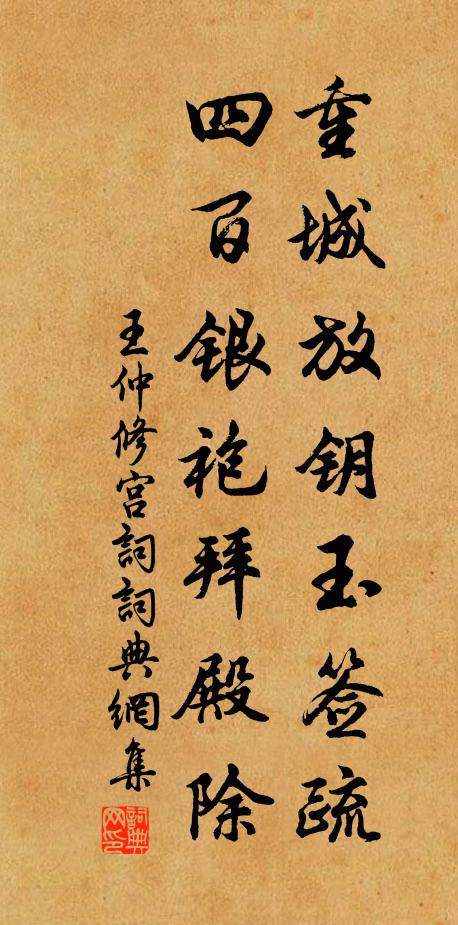 重城放钥玉签疏
四百银袍拜殿除
王仲修宫詞詞典網集
詞典网印